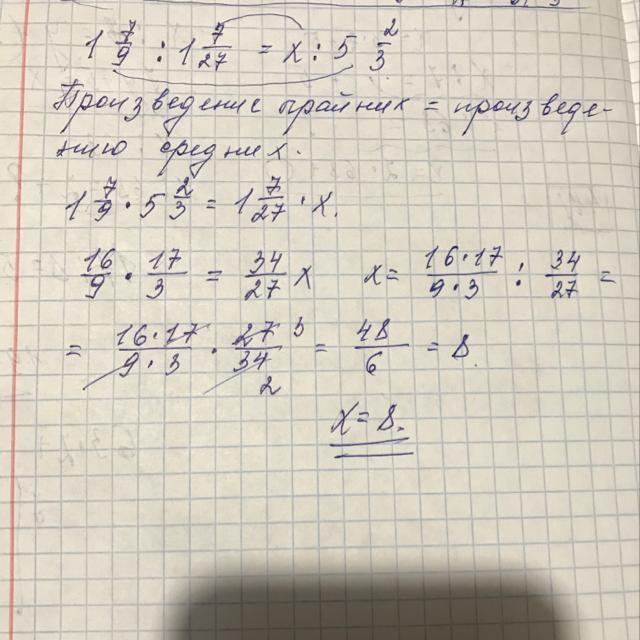 1 7/9 : 1 7/27 = x : 5 2/3
Произведение крайних = произведе-
нию средних.
1 7/9 · 5 2/3 = 1 7/27 · x.
16/9 · 17/3 = 34/27 x   x = 16·17/9·3 : 34/27 =
= 16·17/9·3 · 27/34 3 2 = 48/6 = 8.
x = 8.